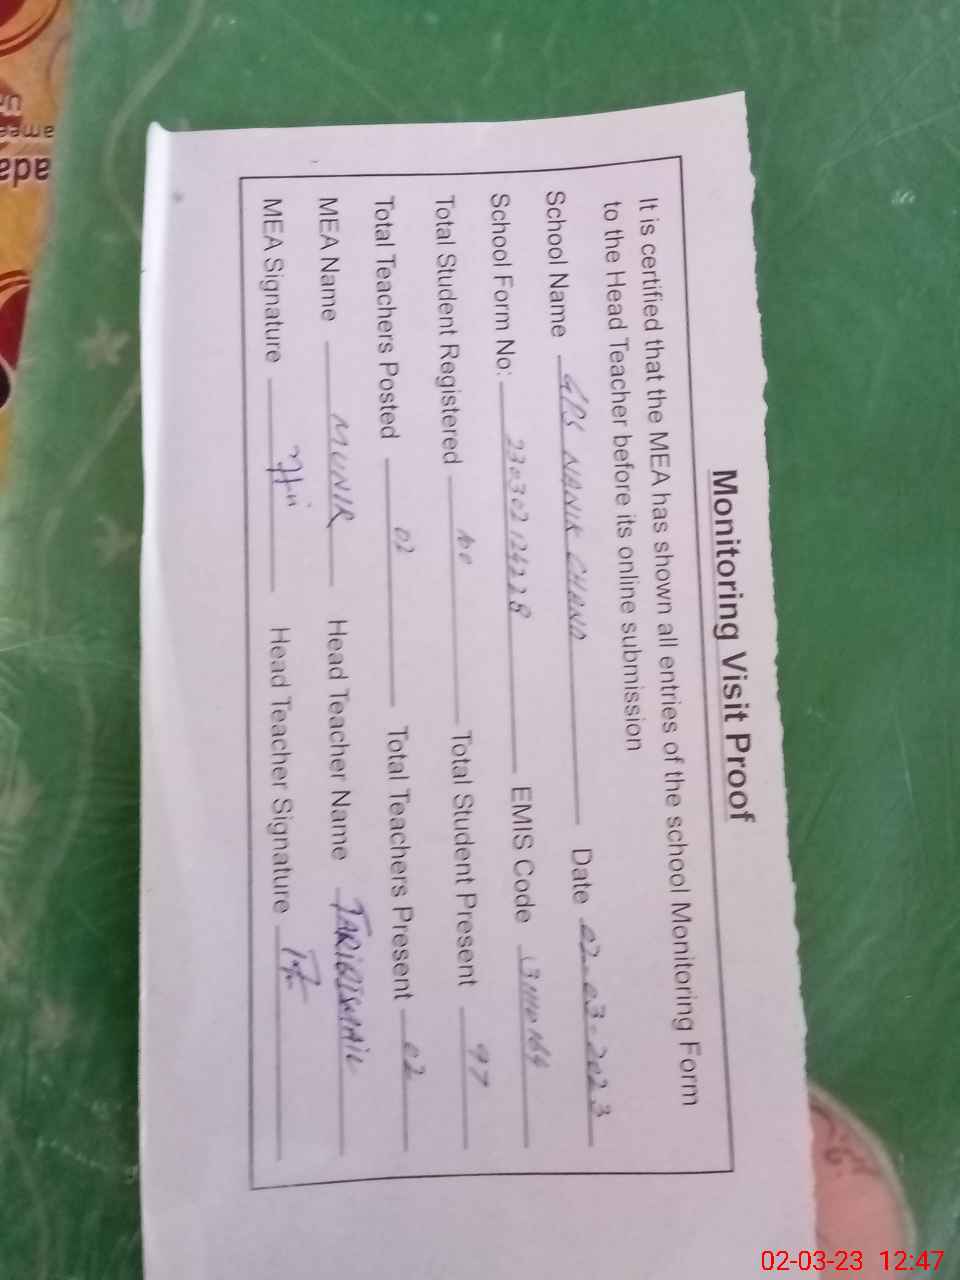 Monitoring Visit Proof
It is certified that the MEA has shown all entries of the school Monitoring Form
to the Head Teacher before its online submission
School Name GPS NANIK CHAND Date 02-03-2023
School Form No: 230302124228 EMIS Code
Total Student Registered 100 Total Student Present 97
Total Teachers Posted 02 Total Teachers Present 02
MEA Name MUNIR Head Teacher Name TARIQ ISMAIL
MEA Signature Head Teacher Signature
02-03-23 12:47